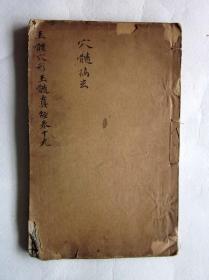 玉髓穴形玉髓真經卷十九
穴髓